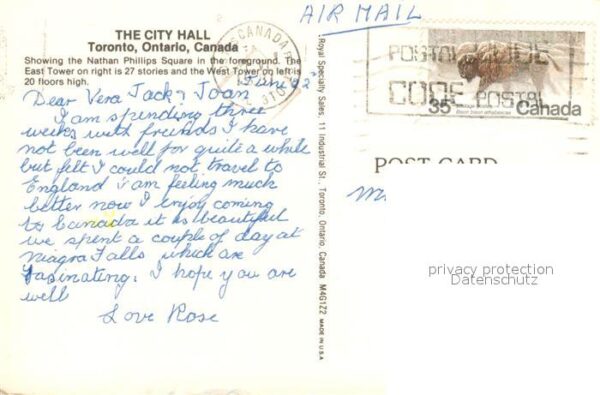 THE CITY HALL
Toronto, Ontario, Canada
Showing the Nathan Phillips Square in the foreground. The
East Tower on right is 27 stories and the West Tower on left is
20 floors high.
June 82
Dear Vera Jack & Joan
I am spending three
weeks with friends I have
not been well for quite a while
but felt I could not travel to
England i am feeling much
better now I enjoy coming
to Canada it is beautiful
we spent a couple of day at
Niagra Falls which are
fasinating. I hope you are
well
Love Rose
Royal Specialty Sales, 11 Industrial St., Toronto, Ontario, Canada M4G1Z2 MADE IN U.S.A
AIR MAIL
CANADA
POSTAL CODE
CODE POSTAL
35
Canada
POST CARD
privacy protection
Datenschutz